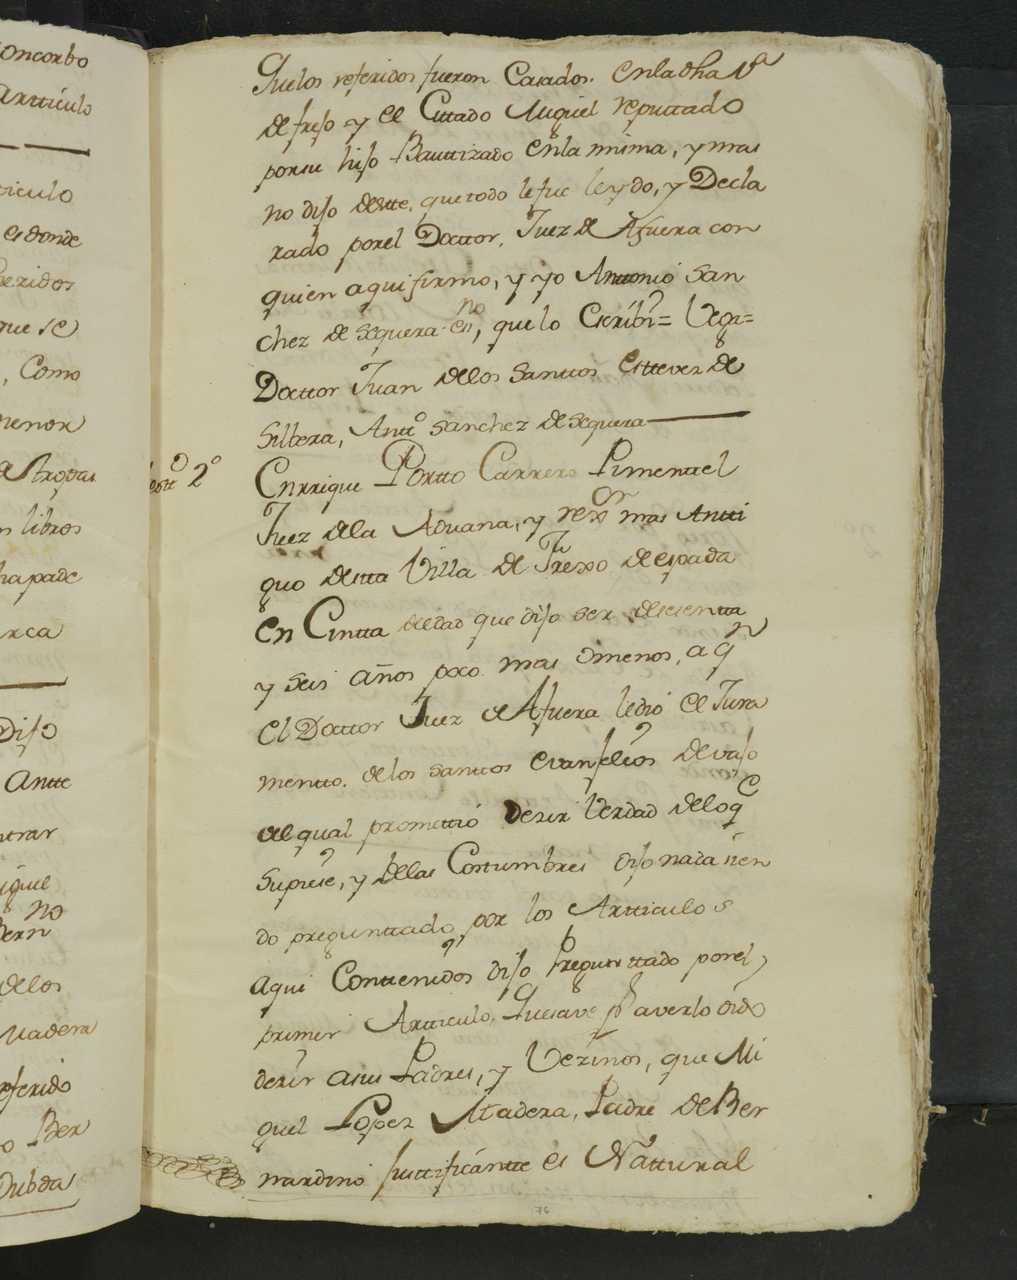 Concorbo
Artticulo
ticulo
es donde
feridos
que se
, Como
menor
n libros
ha pade
arca
Dijo
Antte
ntrar
iguel
no
Bern
dellos
Madera
referido
o Ber
Dubda
Que los referidos fueron Casados. en la dha Va
de frejo y el Cittado Miguel reputtado
por su hijo Bauttizado en la misma, y mas
no dijo desste. que todo le fue leydo, y Decla
rado por el Docttor, Juez de Afuera con
quien aqui firmo, y yo Anttonio San
chez de sequera esno, que lo Escribi = Vegr =
Docttor Juan de los Santtos Esttevez de
Silbera, Antto Sanchez de Sequera
testto 2o
Enrrique Portto Carrero Pimenttel
Juez de la Aduana, y rexor mas Antti
guo destta Villa de Frexo de espada
en Cintta de edad que dijo ser de sesentta
y seis años poco mas o menos, a qn
el Docttor Juez de Afuera le dio el Jura
mentto. de los santtos evanjelios de vajo
del qual promettio Dezir Verdad de lo qe
Supiese, y de las Costtumbres dijo nada sien
do preguntado por los Artticulos
Aqui Conttenidos dijo Preguntado por el
primer Artticulo, Que save pr averlo oido
dezir a sus Padres, y Vezinos, que Mi
guel Lopez Madera, Padre de Ber
nardino justtificantte es Nattural
76